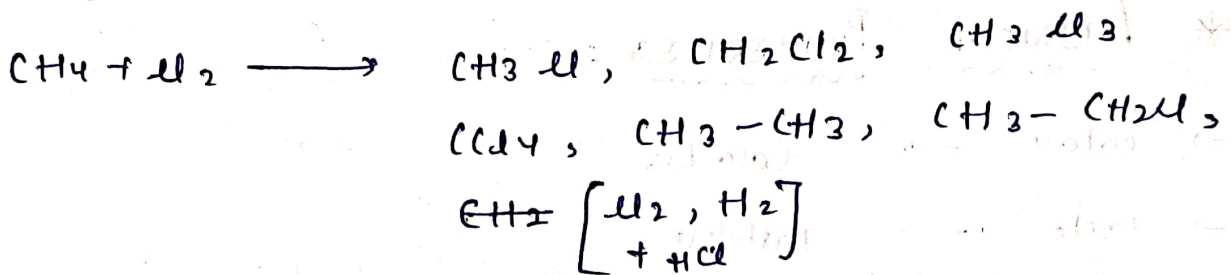 CH4 + Cl2 ⟶ CH3Cl, CH2Cl2, CH3Cl3.
CCl4, CH3-CH3, CH3-CH2Cl,
[Cl2, H2]
+ HCl